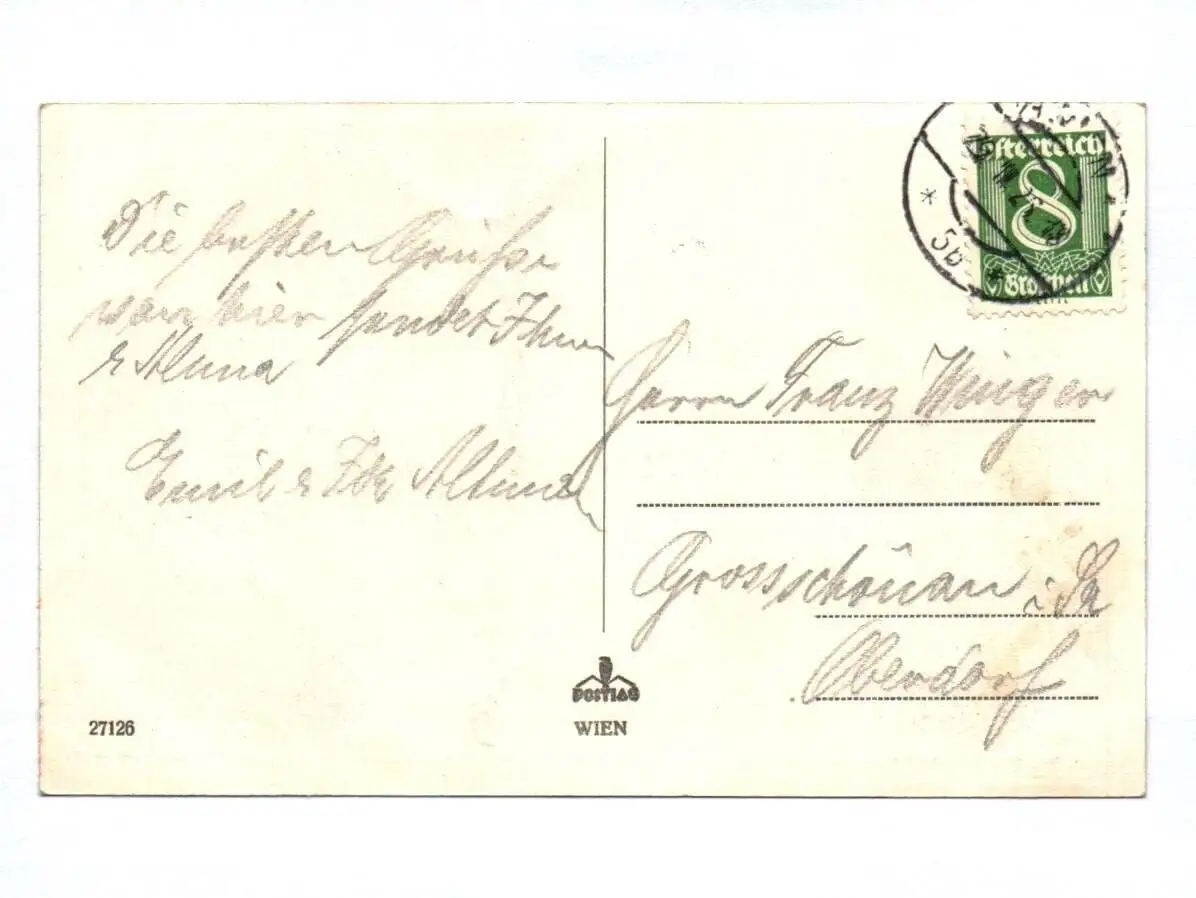 Die besten Grüße
von hier sendet Ihnen
Emil & Ida
Österreich
8
Groschen
5b
Herrn Franz
Grossschönau i Sa
Oberdorf
POSTIAG
WIEN
27126